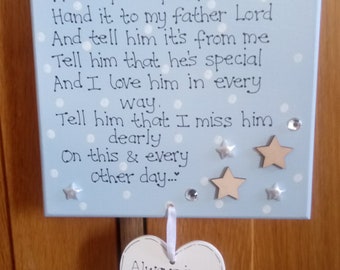 Hand it to my father Lord
And tell him it's from me
Tell him that he's special
And I love him in every
way.
Tell him that I miss him
dearly
On this & every
other day...